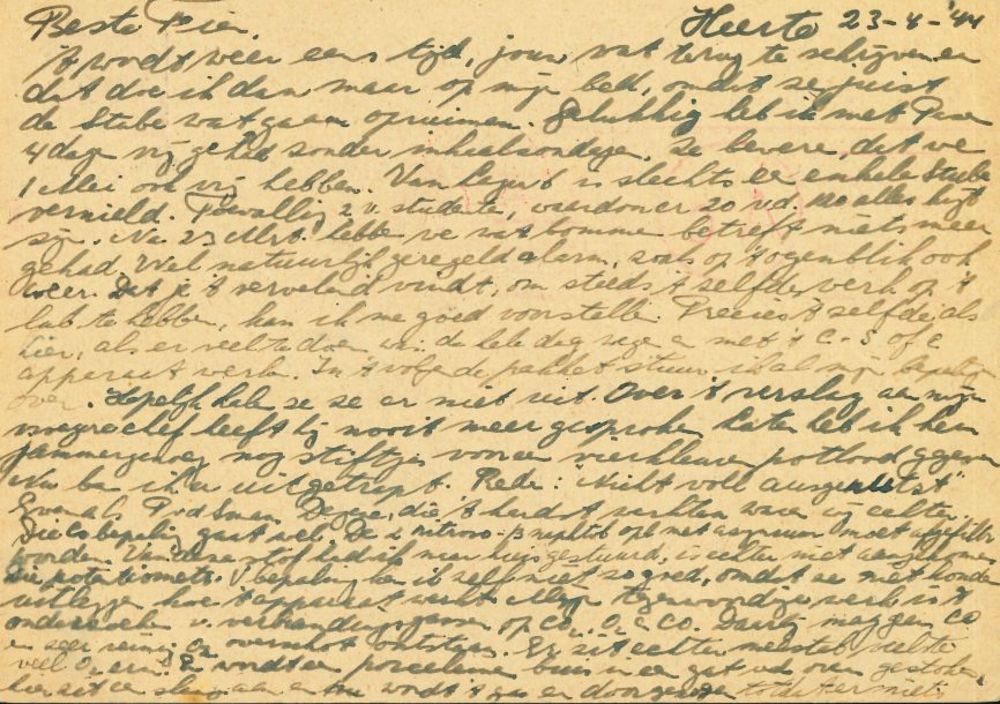 Beste Pier. Heerte 23-4-'44
't wordt weer eens tijd, jou wat terug te schrijven en
dat doe ik dan maar op mijn bed, omdat ze juist
de Stube wat gaan opruimen. Gelukkig heb ik met Pasen
4 dage vrij gehad zonder inhaalzondage. Ze bewere, dat we
1 Mei ook vrij hebben. Van is slechts ee enkele Stube
vernield. Toevallig 2 v. studente, waardoor er 20 v.d. alles kwijt
zijn. Na 23 Mrt. hebbe we wat bomme betreft niets meer
gehad. Wel natuurlijk geregeld alarm, zoals op 't ogenblik ook
weer. Dat je 't vervelend vindt, om steeds 't zelfde werk op 't
lab te hebben, kan ik me goed voorstelle. Precies 't zelfde als
hier, als er veel te doen is: de hele dag wege e met 't C-S of e
apparaat werke. In 't volgende pakket stuur ik al mijn
over. Hopelijk hale ze ze er niet uit. Over 't verslag aan mijn
heeft hij nooit meer gesproke. Later heb ik hem
jammergenoeg nog stiftjes voor een vierkleure potlood gegeven
Nu ben ik er uitgetrapt. Rede: "Nicht voll ausgenutzt"
Evenals die 't hardst werkten waren wij echter.
Die Co bepaling gaat wel. De α nitroso-β naphtol opl. met moet afgefiltr.
worden. Van deze stof had ik naar huis gestuurd, is echter niet aangekomen
Die potentiometr. V bepaling ken ik zelf niet zo goed, omdat ze niet konden
uitlegge hoe 't apparaat werkt. Mijn tegenwoordige werk is 't
onderzoeken v. verbrandingsgassen op CO₂, O₂ e CO. Daarbij mag geen CO
e zeer weinig O₂ overschot ontstaan. Er zit echter meestal
veel O₂ in. Er wordt een porseleine buis in ee gat v.d. oven gestoken,
hier zit ee slang aan en wordt 't gas er doorgezogen totdat er niets